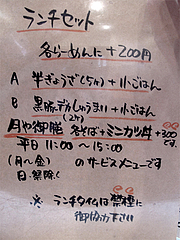 ランチセット
各らーめんに+200円
A 半ぎょうざ(5ケ)+小ごはん
B 黒豚デカしゅうまい+小ごはん
(2ケ)
月や御膳 各そば+ミニカツ丼+300
です
平日 11:00～15:00
(月～金) のサービスメニューです
日・祭除く
※ ランチタイムは禁煙に
御協力下さい